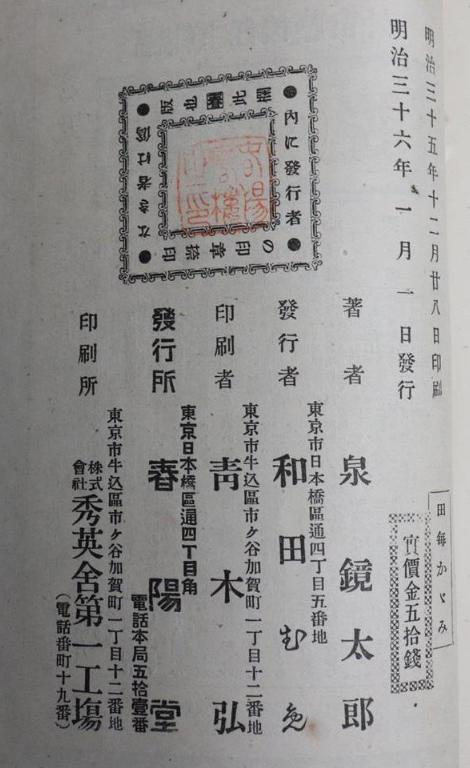 明治三十五年十二月廿八日印刷
明治三十六年一月一日發行
田每かゞみ
實價金五拾錢
著者 泉鏡太郎
東京市日本橋區通四丁目五番地
發行者 和田むめ
東京市牛込區市ケ谷加賀町一丁目十二番地
印刷者 靑木弘
東京日本橋區通四丁目角
發行所 春陽堂
電話本局五拾壹番
東京市牛込區市ケ谷加賀町一丁目十二番地
印刷所 株式會社 秀英舍第一工塲
(電話番町十九番)
內に發行者
の印章捺印
なき者は僞
版也